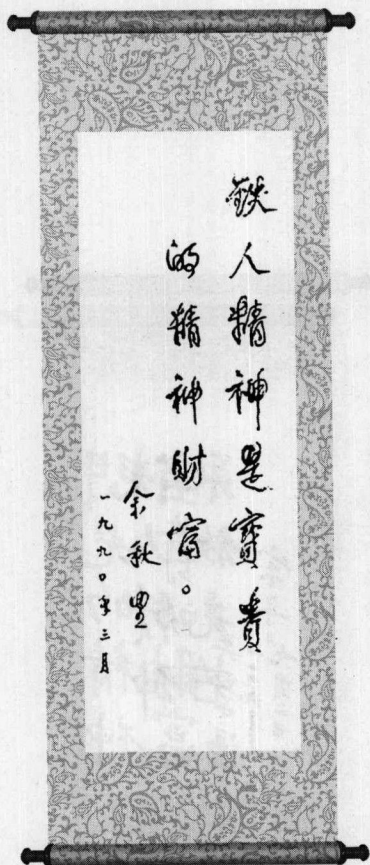 铁人精神是寶貴
的精神財富。
余秋里
一九九〇年三月